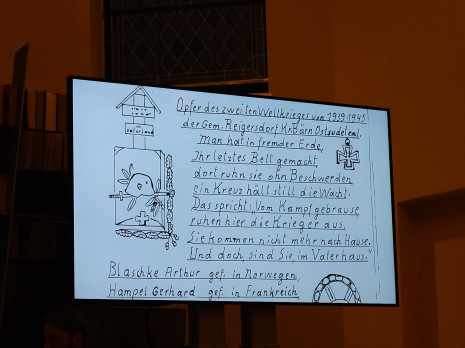 Opfer des zweiten Weltkrieges von 1939-1945
der Gem. Reigersdorf Kr. Bärn Ostsudetenl.
Man hat in fremder Erde,
Ihr letztes Bett gemacht
dort ruhn sie ohn Beschwerden
ein Kreuz hält still die Wacht.
Das spricht: „Vom Kampfgebrause
ruhen hier die Krieger aus,
Sie kommen nicht mehr nach Hause,
Und doch sind Sie im Vaterhaus."
Blaschke Arthur gef. in Norwegen,
Hampel Gerhard gef. in Frankreich,